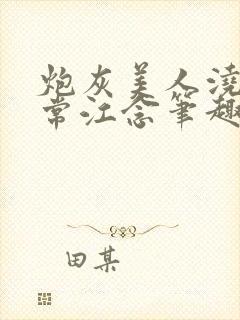 炮灰美人浇
常江念笔趣
田某